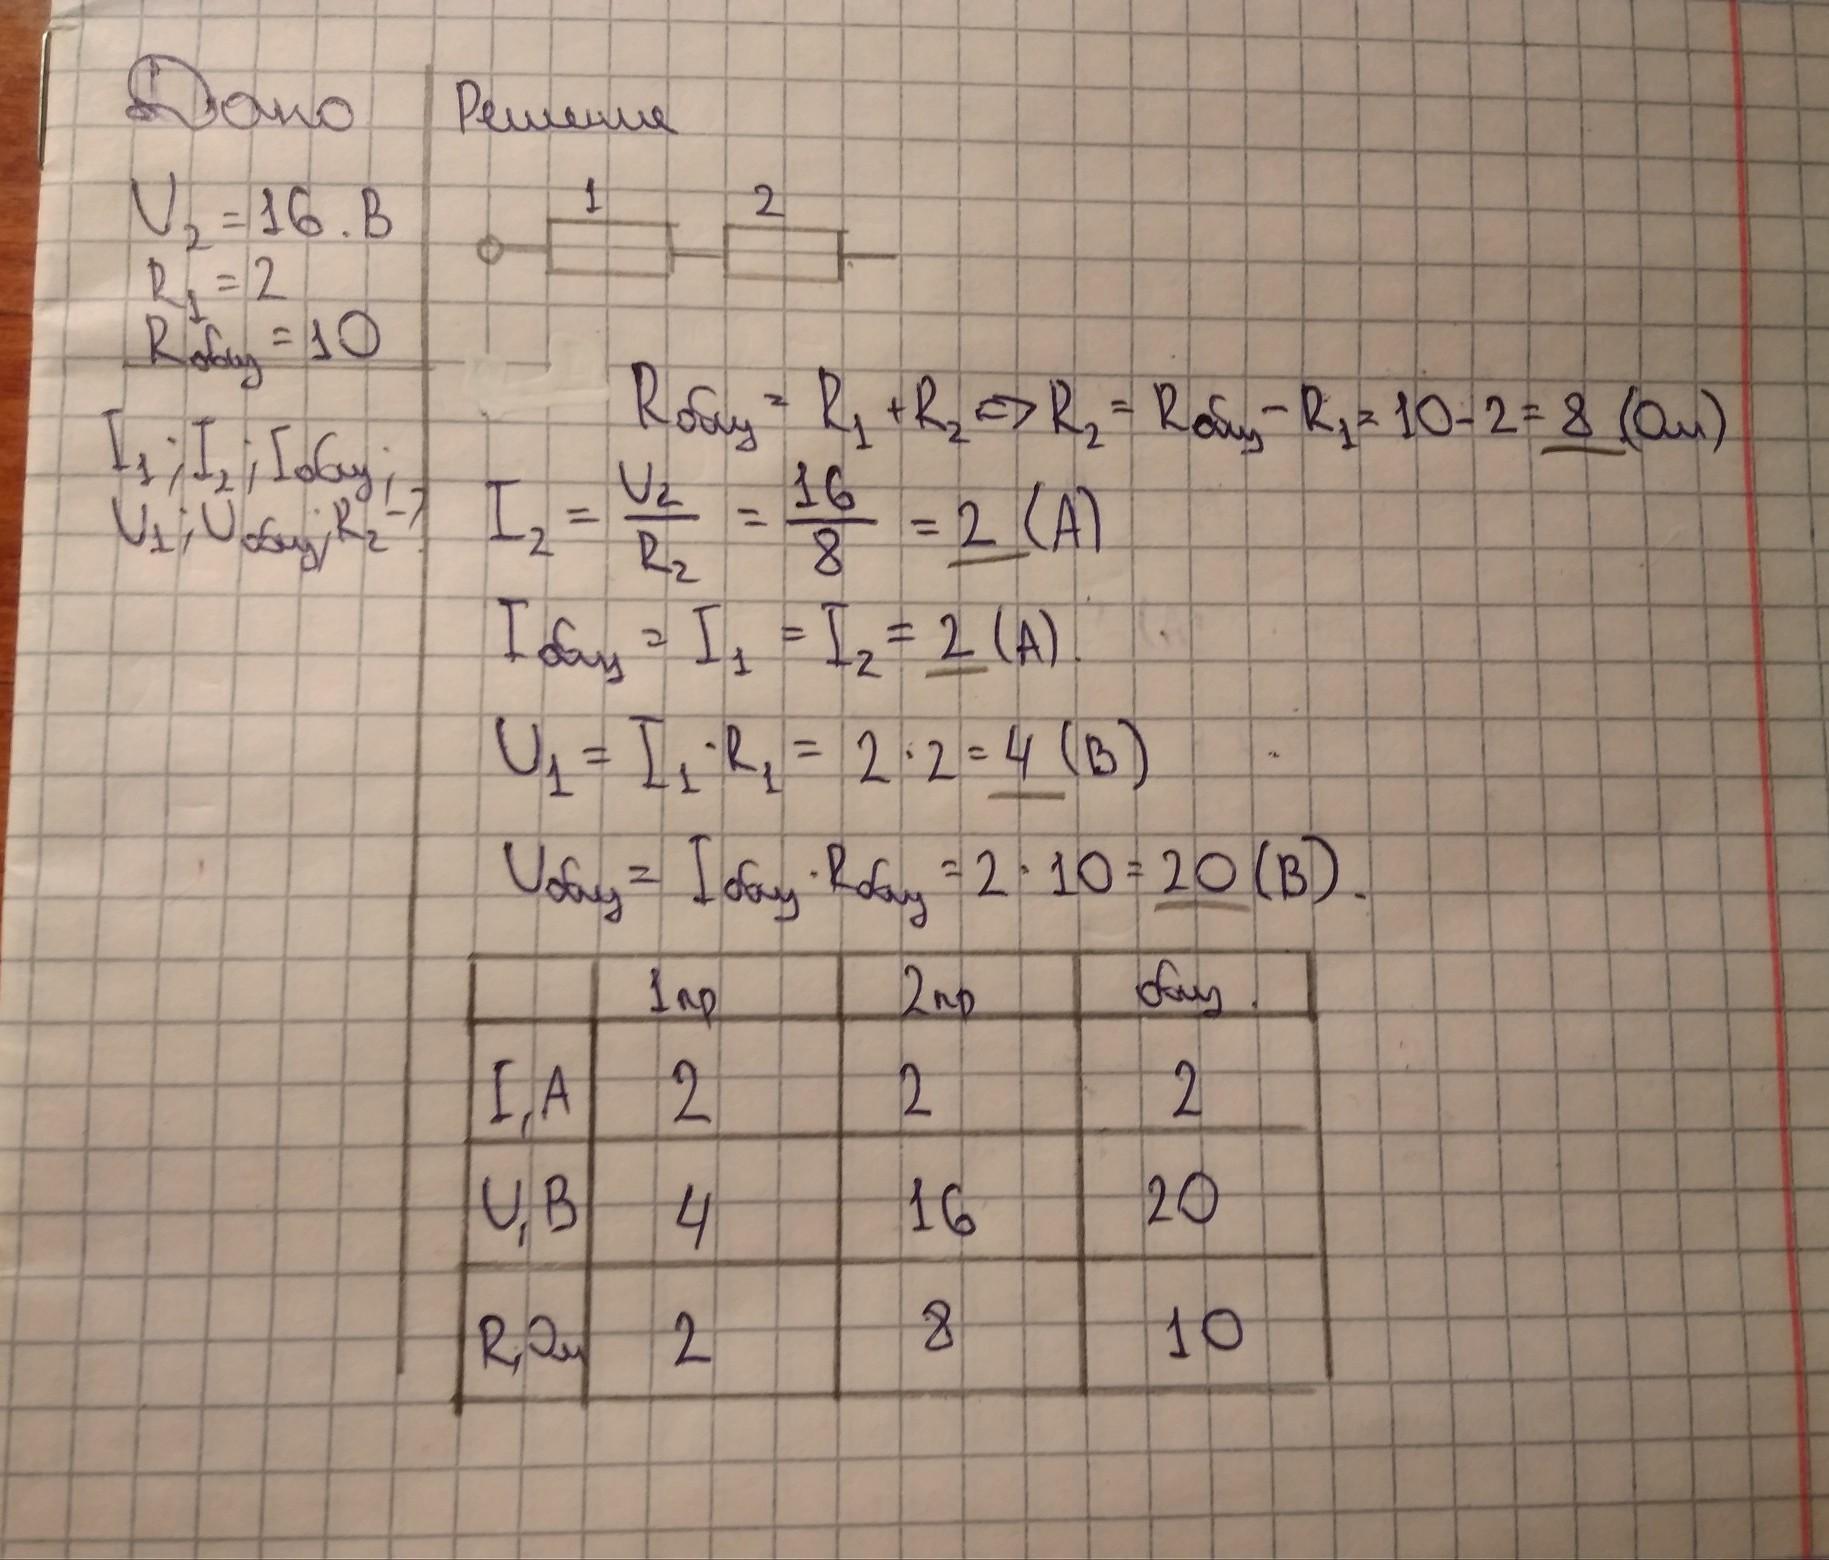 Дано
U₂ = 16. В
R₁ = 2
Rобщ = 10
I₁; I₂; Iобщ;
U₁; Uобщ; R₂ - ?
Решение
1 2
Rобщ = R₁ + R₂ => R₂ = Rобщ - R₁ = 10 - 2 = 8 (Ом)
I₂ = U₂/R₂ = 16/8 = 2 (А)
Iобщ = I₁ = I₂ = 2 (А).
U₁ = I₁ · R₁ = 2 · 2 = 4 (В)
Uобщ = Iобщ · Rобщ = 2 · 10 = 20 (В).
1пр 2пр общ.
I, А 2 2 2
U, В 4 16 20
R, Ом 2 8 10